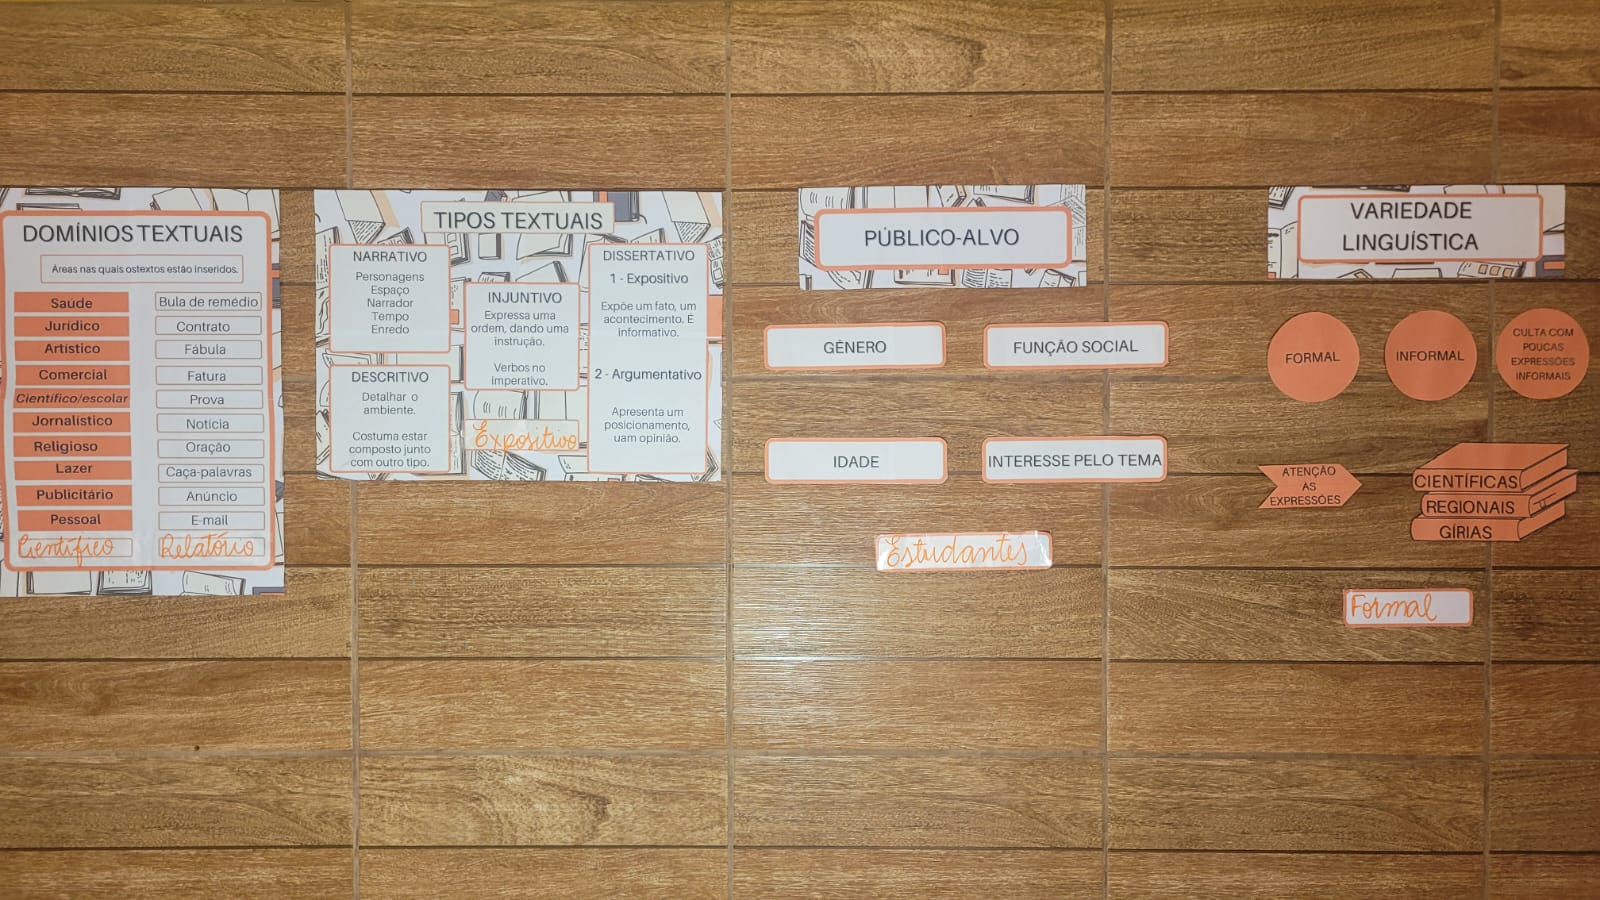 DOMÍNIOS TEXTUAIS
Áreas nas quais ostextos estão inseridos.
Saúde Bula de remédio
Jurídico Contrato
Artístico Fábula
Comercial Fatura
Científico/escolar Prova
Jornalístico Notícia
Religioso Oração
Lazer Caça-palavras
Publicitário Anúncio
Pessoal E-mail
Científico Relatório
TIPOS TEXTUAIS
NARRATIVO
Personagens
Espaço
Narrador
Tempo
Enredo
DESCRITIVO
Detalhar o
ambiente.
Costuma estar
composto junto
com outro tipo.
INJUNTIVO
Expressa uma
ordem, dando uma
instrução.
Verbos no
imperativo.
Expositivo
DISSERTATIVO
1 - Expositivo
Expõe um fato, um
acontecimento. É
informativo.
2 - Argumentativo
Apresenta um
posicionamento,
uam opinião.
PÚBLICO-ALVO
GÊNERO
FUNÇÃO SOCIAL
IDADE
INTERESSE PELO TEMA
Estudantes
VARIEDADE
LINGUÍSTICA
FORMAL
INFORMAL
CULTA COM
POUCAS
EXPRESSÕES
INFORMAIS
ATENÇÃO
AS
EXPRESSÕES
CIENTÍFICAS
REGIONAIS
GÍRIAS
Formal